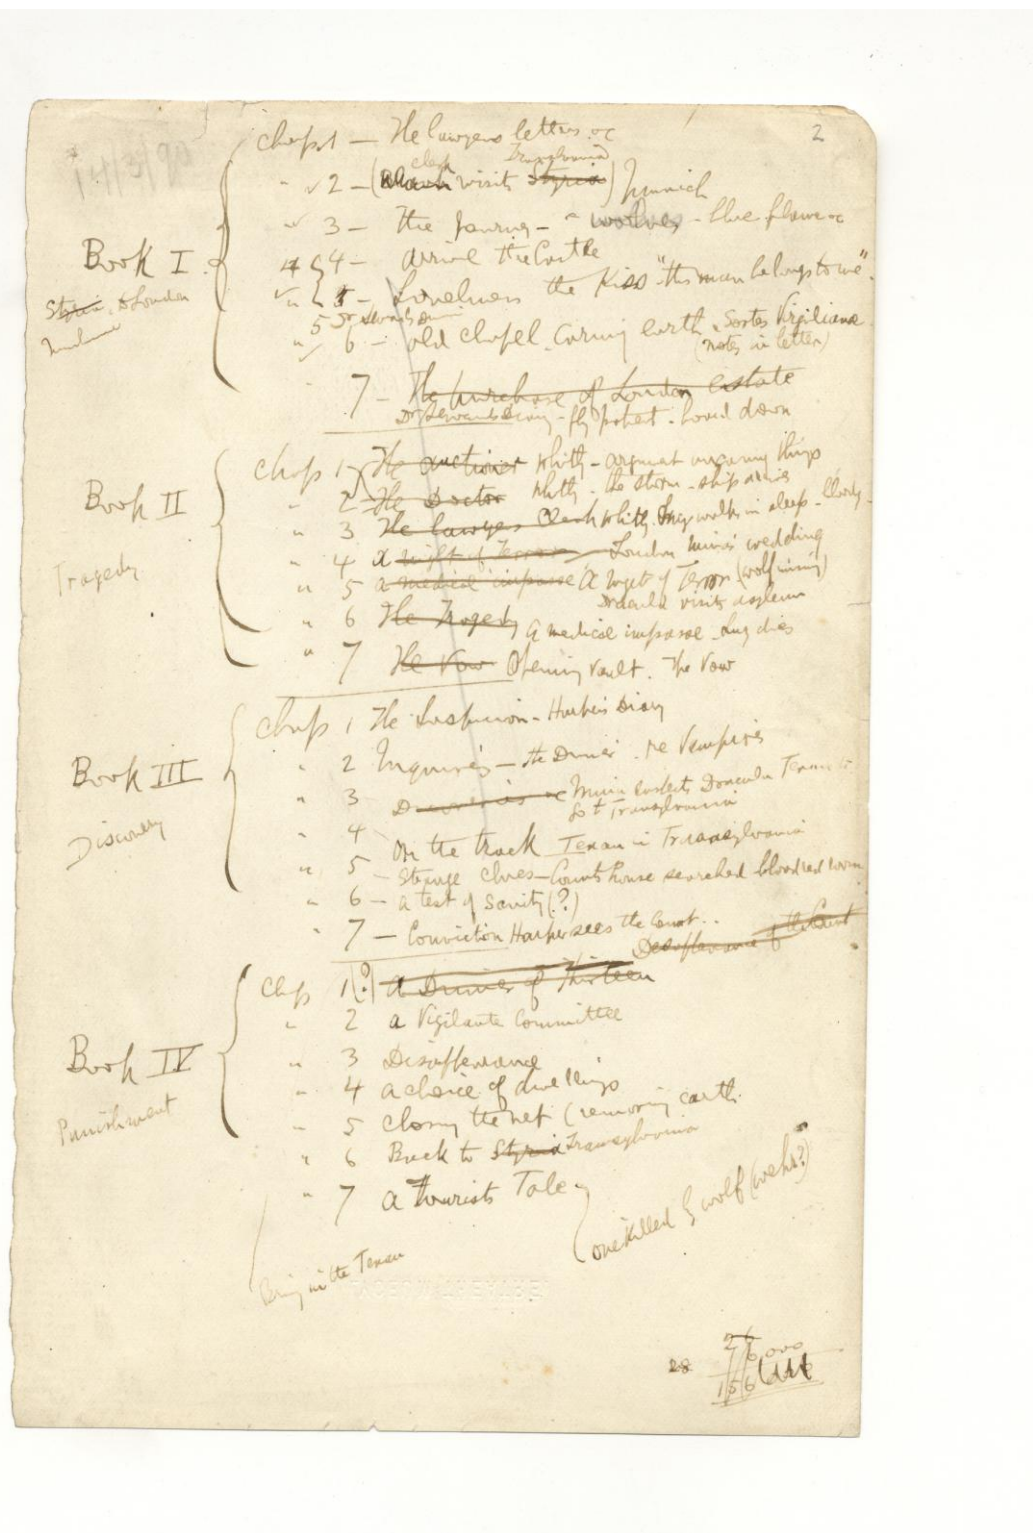 2
Chap 1 — The lawyers letters &c
clerk Transylvania
" ✓ 2 — ( visits Styria) Munich
" ✓ 3 — the journey — " wolves - blue flame &c
Book I
" 4 — arrive the Castle
Styria to London
✓ " 5 — Loneliness the Kiss "this man belongs to me"
5 Dr Sewards Diary
" ✓ 6 — old chapel carrying earth. Sortes Virgilianae
(notes in letter)
" 7 — The purchase of London estate
Dr Sewards Diary - fly patient
Book II
Tragedy
Chap 1 The auctioneer Whitby - argument uncanny things
" 2 The Doctor Whitby - the storm - ship arrives
" 3 The lawyers Clerk Whitby. Lucy walks in sleep - bloody
" 4 a night of Terror London Mina's wedding
" 5 a medical impasse A night of Terror (wolf missing)
Dracula visits asylum
" 6 The Tragedy A medical impasse - Lucy dies
" 7 The Vow Opening vault. The Vow
Book III
Discovery
Chap 1 The Suspicion - Harker's Diary
" 2 Inquiries — the Dinner. re Vampires
" 3 Mina suspects Dracula Texan
to Transylvania
" 4 On the track Texan in Transylvania
" 5 - Strange clues — Counts house searched blood red room
" 6 - a test of Sanity (?)
" 7 — Conviction Harker sees the Count ..
Disappearance of the Count
Book IV
Punishment
Chap 1 (?) a Dinner of Thirteen
" 2 a Vigilante Committee
" 3 Disappearance
" 4 a choice of dwellings
" 5 closing the net (removing earth
" 6 Back to Styria Transylvania
" 7 a Tourists Tale
one killed by wolf (wehr?)
Bring in the Texan
28
26
6,000
156